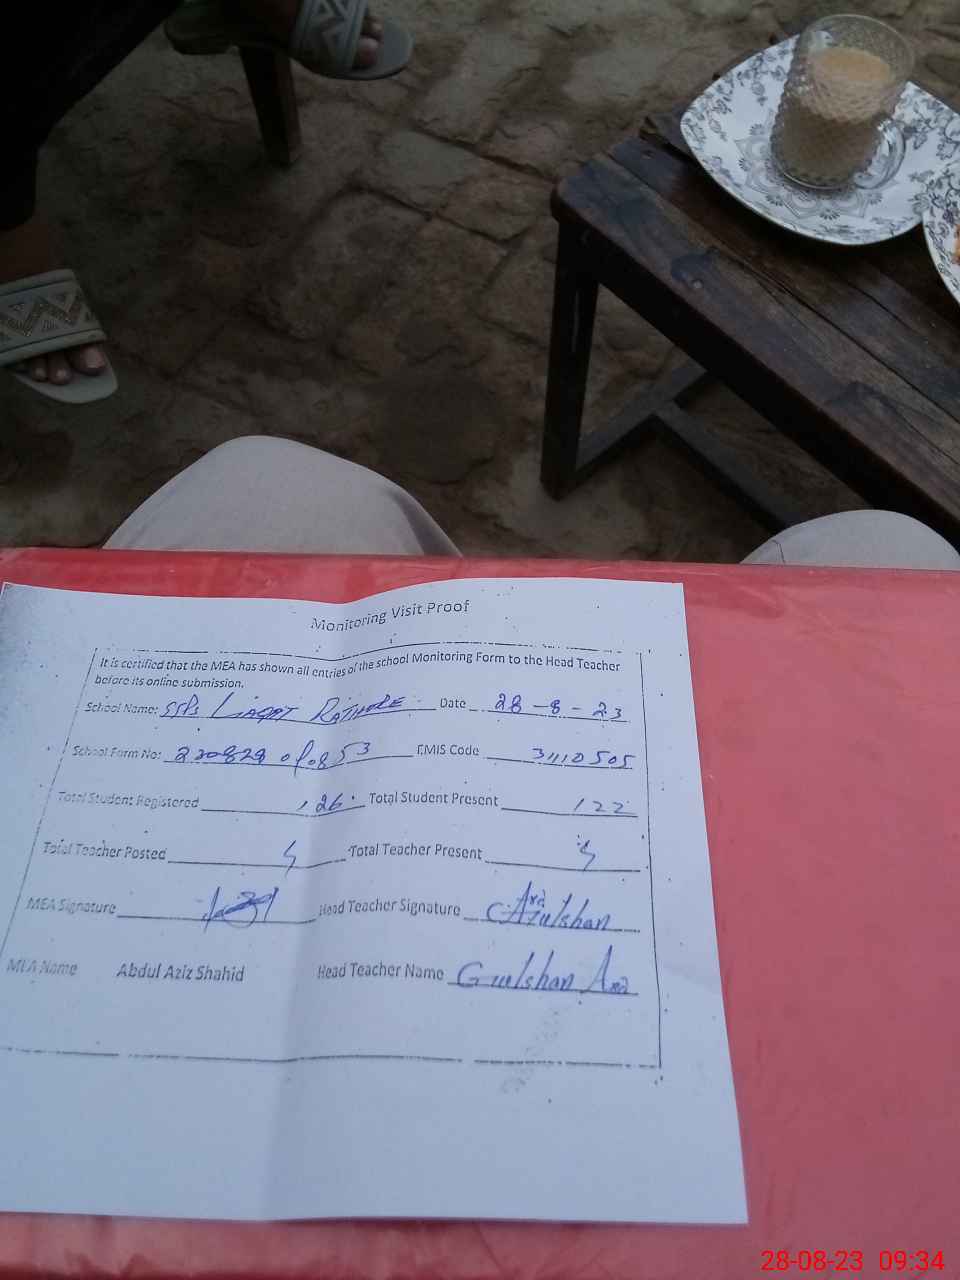 Monitoring Visit Proof
It is certified that the MEA has shown all entries of the school Monitoring Form to the Head Teacher
before its online submission.
School Name: SSPs LIAQAT RATHORE Date 28-8-23
School Form No: EMIS Code 31110505
Total Student Registered 126 Total Student Present 122
Total Teacher Posted Total Teacher Present
MEA Signature Head Teacher Signature
MEA Name Abdul Aziz Shahid Head Teacher Name Gulshan Ara
28-08-23 09:34